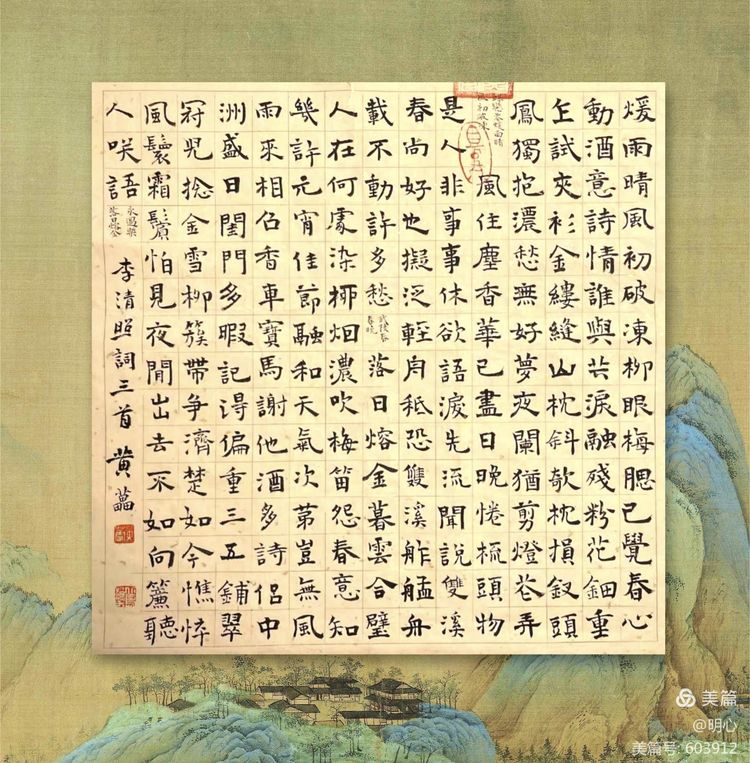 煖雨晴風初破凍柳眼梅腮已覺春心
動酒意詩情誰與共淚融殘粉花鈿重
乍試夾衫金縷縫山枕斜欹枕損釵頭
鳳獨抱濃愁無好夢夜闌猶剪燈花弄
風住塵香華已盡日晚倦梳頭物
是人非事事休欲語淚先流聞說雙溪
春尚好也擬泛輕舟秪恐雙溪舴艋舟
載不動許多愁 武陵春春晚 落日熔金暮雲合璧
人在何處染柳烟濃吹梅笛怨春意知
幾許元宵佳節融和天氣次第豈無風
雨來相召香車寶馬謝他酒多詩侶中
洲盛日閨門多暇記得偏重三五鋪翠
冠兒捻金雪柳簇帶爭濟楚如今憔悴
風鬟霜鬢怕見夜間出去不如向簾聽
人咲語 永遇樂落日熔金 李清照詞三首 黃
美篇
@明心
美篇号: 603912